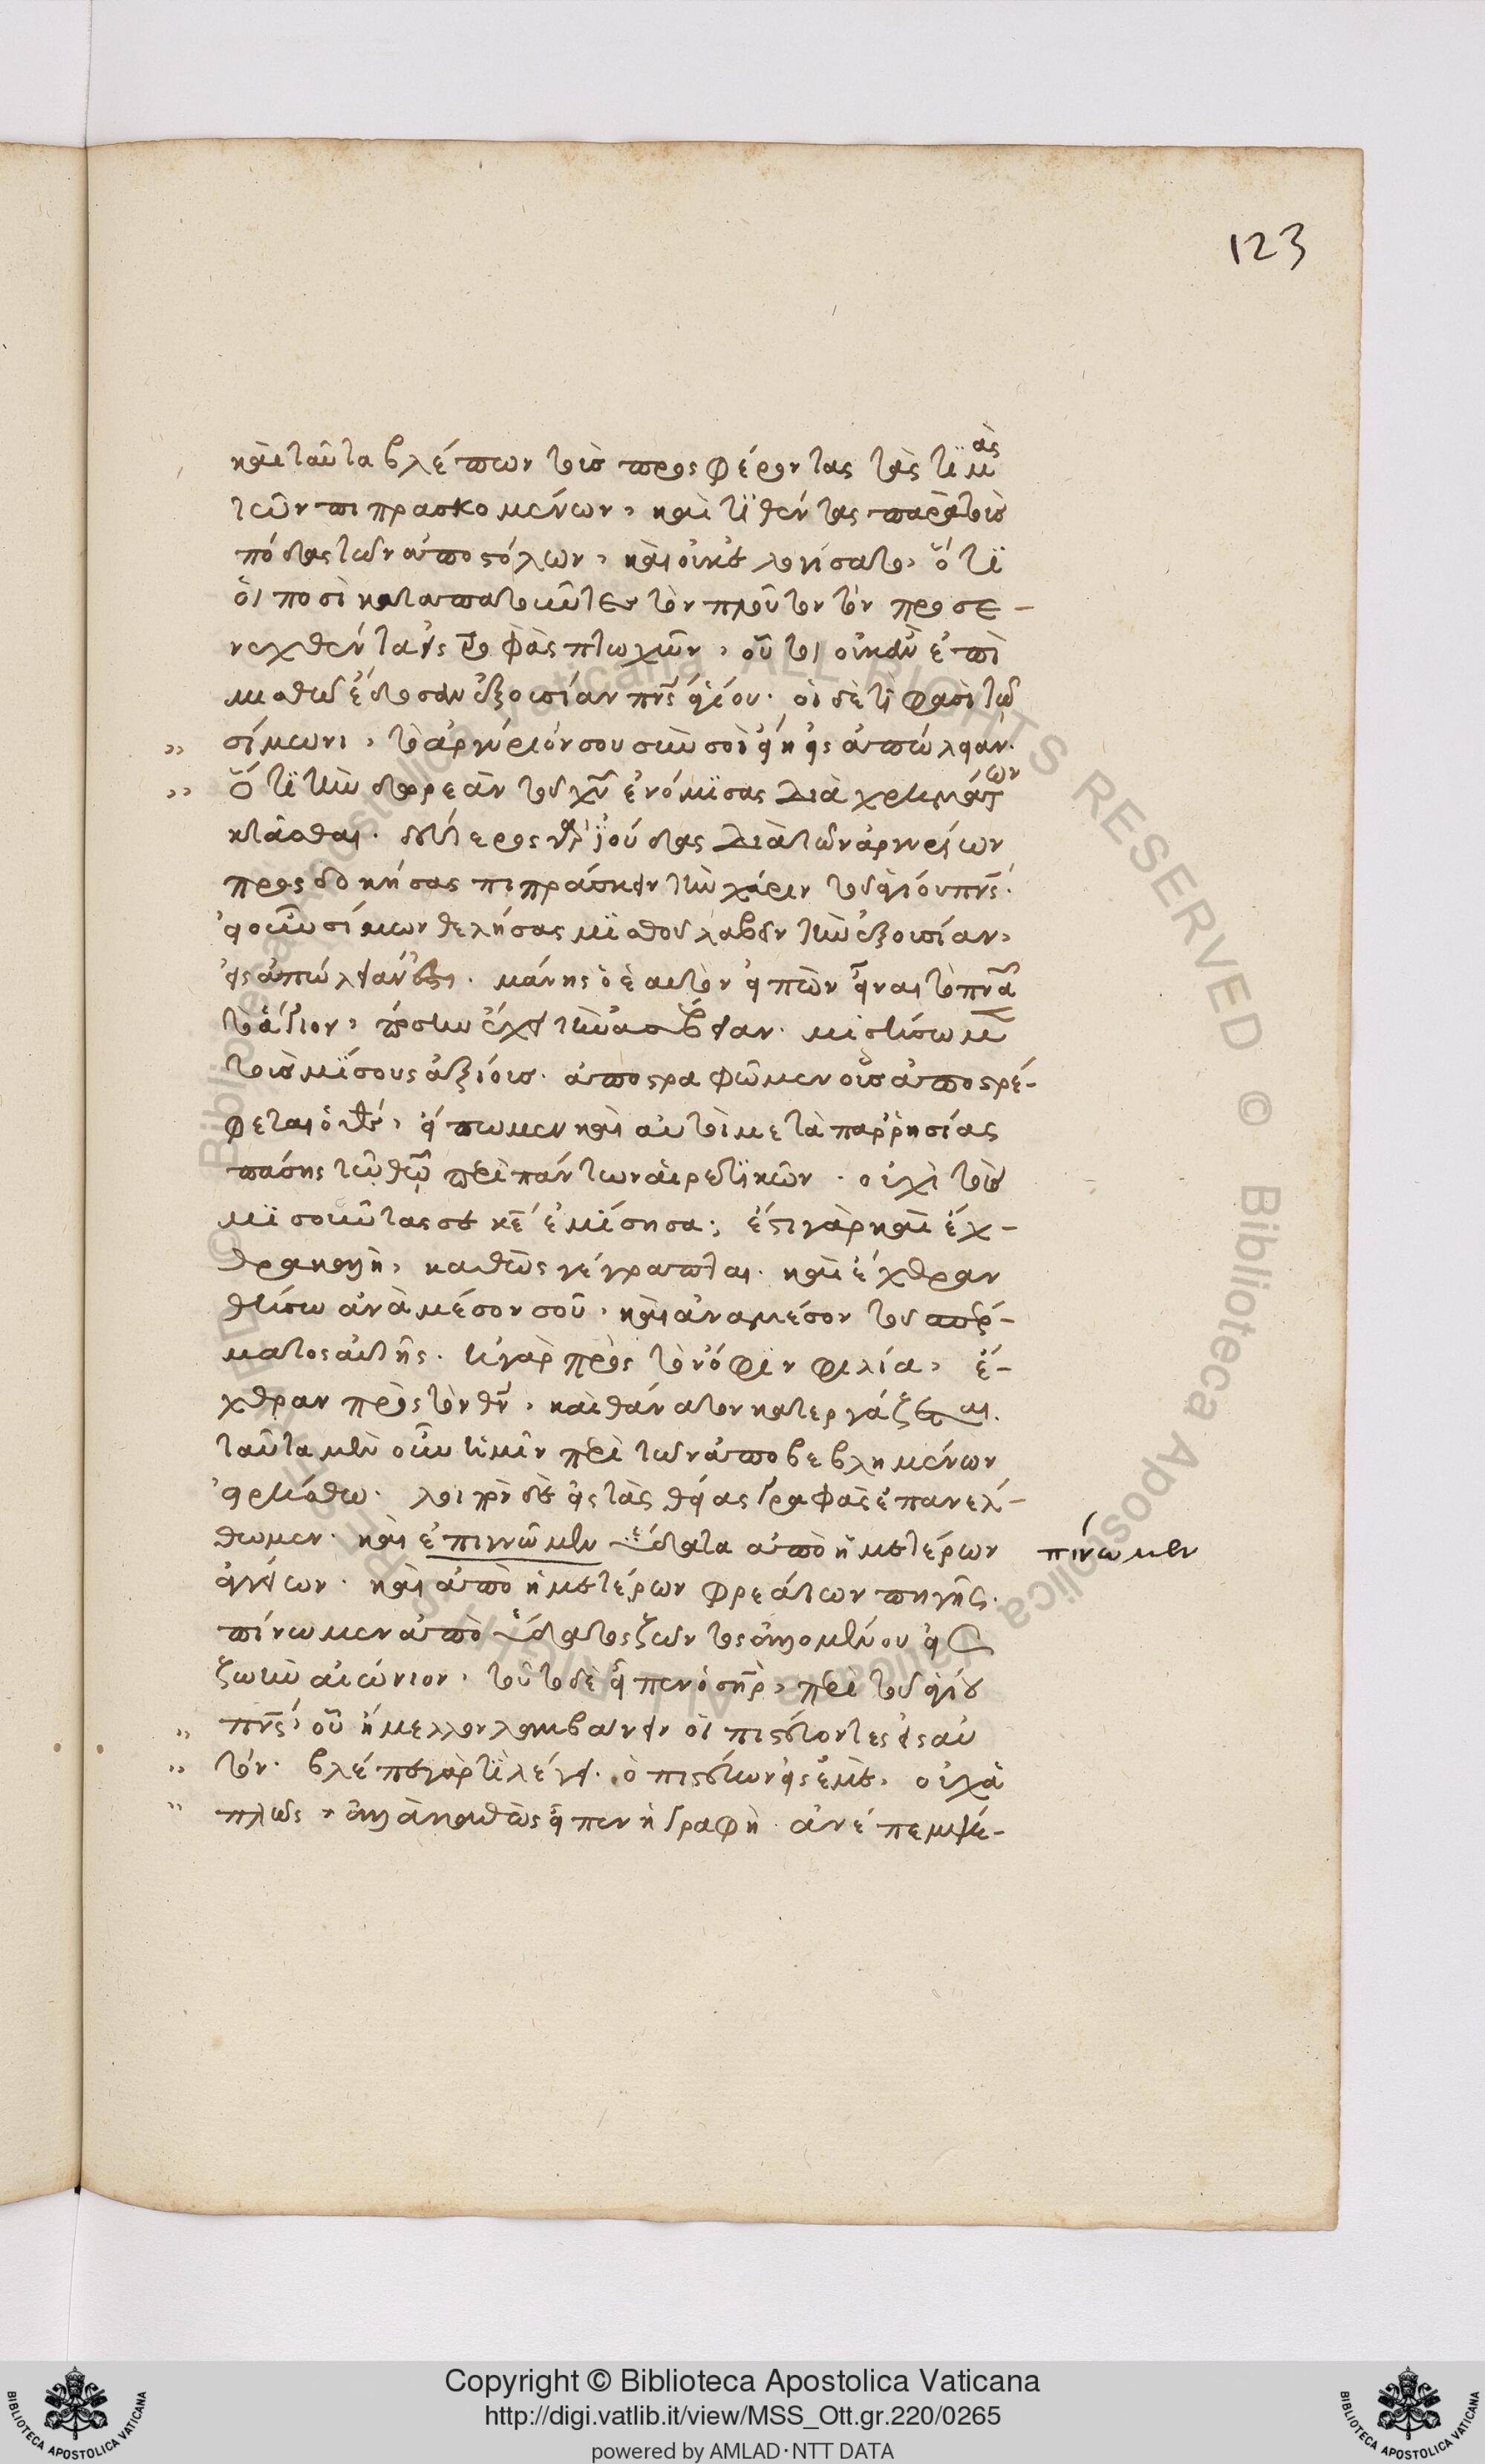 123
καὶ ταῦτα βλέπων τοὺς προσφέροντας τὰς τιμὰς
τῶν πιπρασκομένων, καὶ τιθέντας παρὰ τοὺς
πόδας τῶν ἀποστόλων, καὶ οὐκ ἐλογίσατο, ὅτι
οἱ ποσὶ καταπατοῦντες τὸν πλοῦτον τὸν προσε-
νεχθέντα εἰς τροφὰς πτωχῶν, οὗτοι οὐκ ἂν ἐπὶ
μισθῷ ἔδοσαν ἐξουσίαν πνς ἁγίου. οἱ δὲ τί φασὶ τῷ
σίμωνι, τὸ ἀργύριόν σου σὺν σοὶ εἴη εἰς ἀπώλειαν.
ὅτι τὴν δωρεὰν τοῦ χυ ἐνόμισας διὰ χρημάτων
κτᾶσθαι. δεύτερος γὰρ ἰούδας διὰ τῶν ἀργυρίων
προσδοκήσας πιπράσκειν τὴν χάριν τοῦ ἁγίου πνς.
εἰ οὖν σίμων θελήσας μισθοῦ λαβεῖν τὴν ἐξουσίαν,
εἰς ἀπώλειάν ἐστι. μάνης ὁ ἑαυτὸν εἰπὼν εἶναι τὸ πνα
τὸ ἅγιον, πόσην ἔχει τὴν ἀσέβειαν. μισήσωμεν
τοὺς μίσους ἀξίους. ἀποστραφῶμεν οὓς ἀποστρέ-
φεται ὁ θς, εἴπωμεν καὶ αὐτοὶ μετὰ παρρησίας
πάσης τῷ θῶ περὶ πάντων αἱρετικῶν. οὐχὶ τοὺς
μισοῦντας σε κε ἐμίσησα; ἔστι γὰρ καὶ ἔχ-
θρα καλὴ, καθὼς γέγραπται. καὶ ἔχθραν
θήσω ἀνὰ μέσον σοῦ, καὶ ἀναμέσον τοῦ σπέρ-
ματος αὐτῆς. ἡ γὰρ πρὸς τὸν ὄφιν φιλία, ἔ-
χθραν πρὸς τὸν θν, καὶ θάνατον κατεργάζεται.
ταῦτα μὲν οὖν ἡμῖν περὶ τῶν ἀποβεβλημένων
εἰρήσθω. λοιπὸν δὲ εἰς τὰς θείας γραφὰς ἐπανέλ-
θωμεν. καὶ ἐπινῶμεν ὕδατα ἀπὸ ἡμετέρων πίνωμεν
ἀγγείων. καὶ ἀπὸ ἡμετέρων φρεάτων πηγῆς.
πίνωμεν ἀπὸ ὕδατος ζῶντος ἁλλομένου εἰς
ζωὴν αἰώνιον. τοῦτο δὲ εἶπεν ὁ σηρ, περὶ τοῦ ἁγίου
πνς, οὗ ἤμελλον λαμβάνειν οἱ πιστεύοντες εἰς αὐ
τόν. βλέπε γὰρ τί λέγει. ὁ πιστεύων εἰς ἐμὲ, οὐχ ἁ
πλῶς, ἀλλὰ καθὼς εἶπεν ἡ γραφὴ. ἀνέπεμψέ-
Copyright © Biblioteca Apostolica Vaticana
http://digi.vatlib.it/view/MSS_Ott.gr.220/0265
powered by AMLAD·NTT DATA